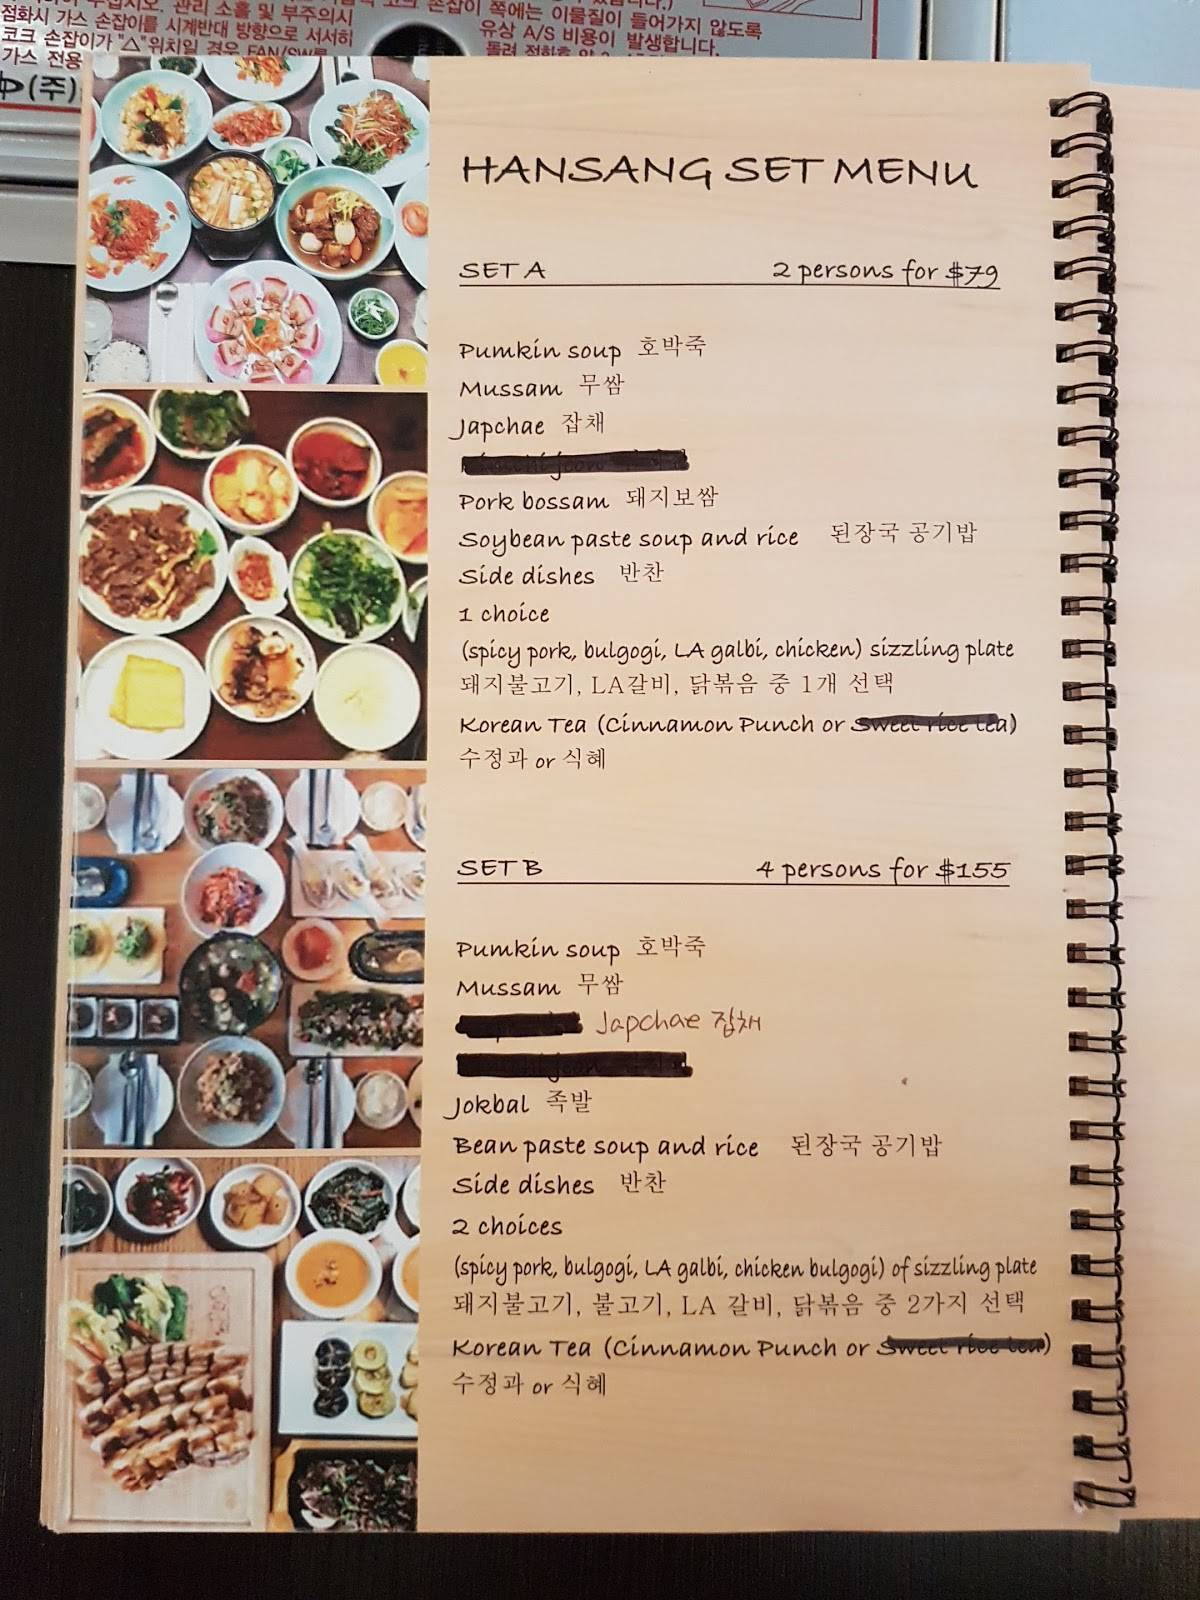 점화시 가스 손잡이를 시계반대 방향으로 서서히
코크 손잡이가 "△"위치일 경우 FAN/SW를
가스 전용
(주)
코크 손잡이 쪽에는 이물질이 들어가지 않도록
유상 A/S 비용이 발생합니다.
HANSANG SET MENU
SET A 2 persons for $79
Pumkin soup 호박죽
Mussam 무쌈
Japchae 잡채
Pork bossam 돼지보쌈
Soybean paste soup and rice 된장국 공기밥
Side dishes 반찬
1 choice
(spicy pork, bulgogi, LA galbi, chicken) sizzling plate
돼지불고기, LA갈비, 닭볶음 중 1개 선택
Korean Tea (Cinnamon Punch or Sweet rice tea)
수정과 or 식혜
SET B 4 persons for $155
Pumkin soup 호박죽
Mussam 무쌈
Japchae 잡채
Jokbal 족발
Bean paste soup and rice 된장국 공기밥
Side dishes 반찬
2 choices
(spicy pork, bulgogi, LA galbi, chicken bulgogi) of sizzling plate
돼지불고기, 불고기, LA 갈비, 닭볶음 중 2가지 선택
Korean Tea (Cinnamon Punch or Sweet rice tea)
수정과 or 식혜